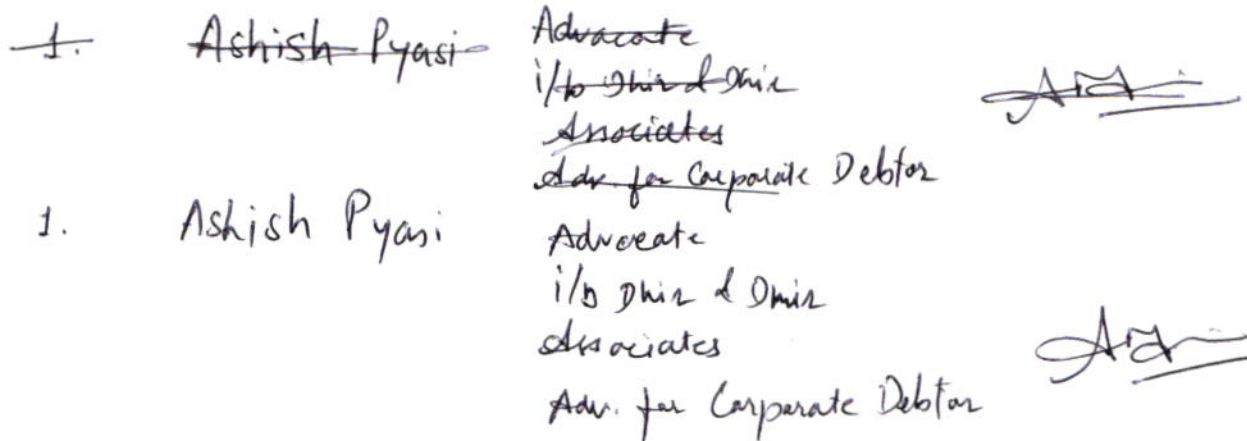 1. Ashish Pyasi Advacate
i/b Dhir & Dhir
Associates
Adv. for Corporate Debtor
1. Ashish Pyasi Advocate
i/b Dhir & Dhir
Associates
Adv. for Corporate Debtor